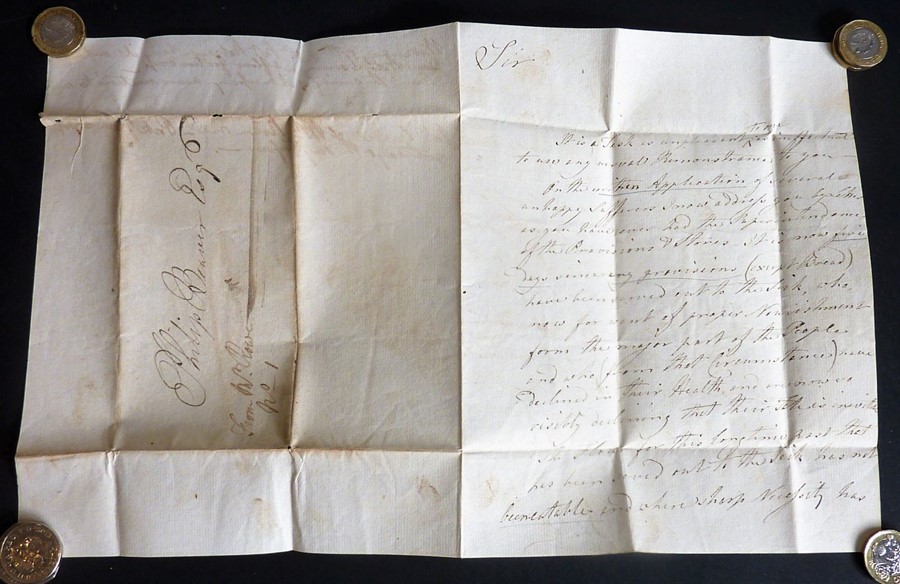 Philip Beaver Esqr
From Mr Rowe
No 1
Sir
It is a Task so unpleasant to me
to use any moral Remonstrance to you
On the written Application of several
unhappy Sufferers I now address you
as you have over and the
of the Provisions & Stores. It is now five
Days since any provisions (except Bread)
have been served out to the Sick, who
now for want of proper Nourishment
form the major part of the People
and who (from that Circumstance) have
declined in their Health and are now so
visibly declining that their Fate is inevita
The Flour for this longtime past that
has been served out to the Sick has not
been eatable and where sharp Necessity has